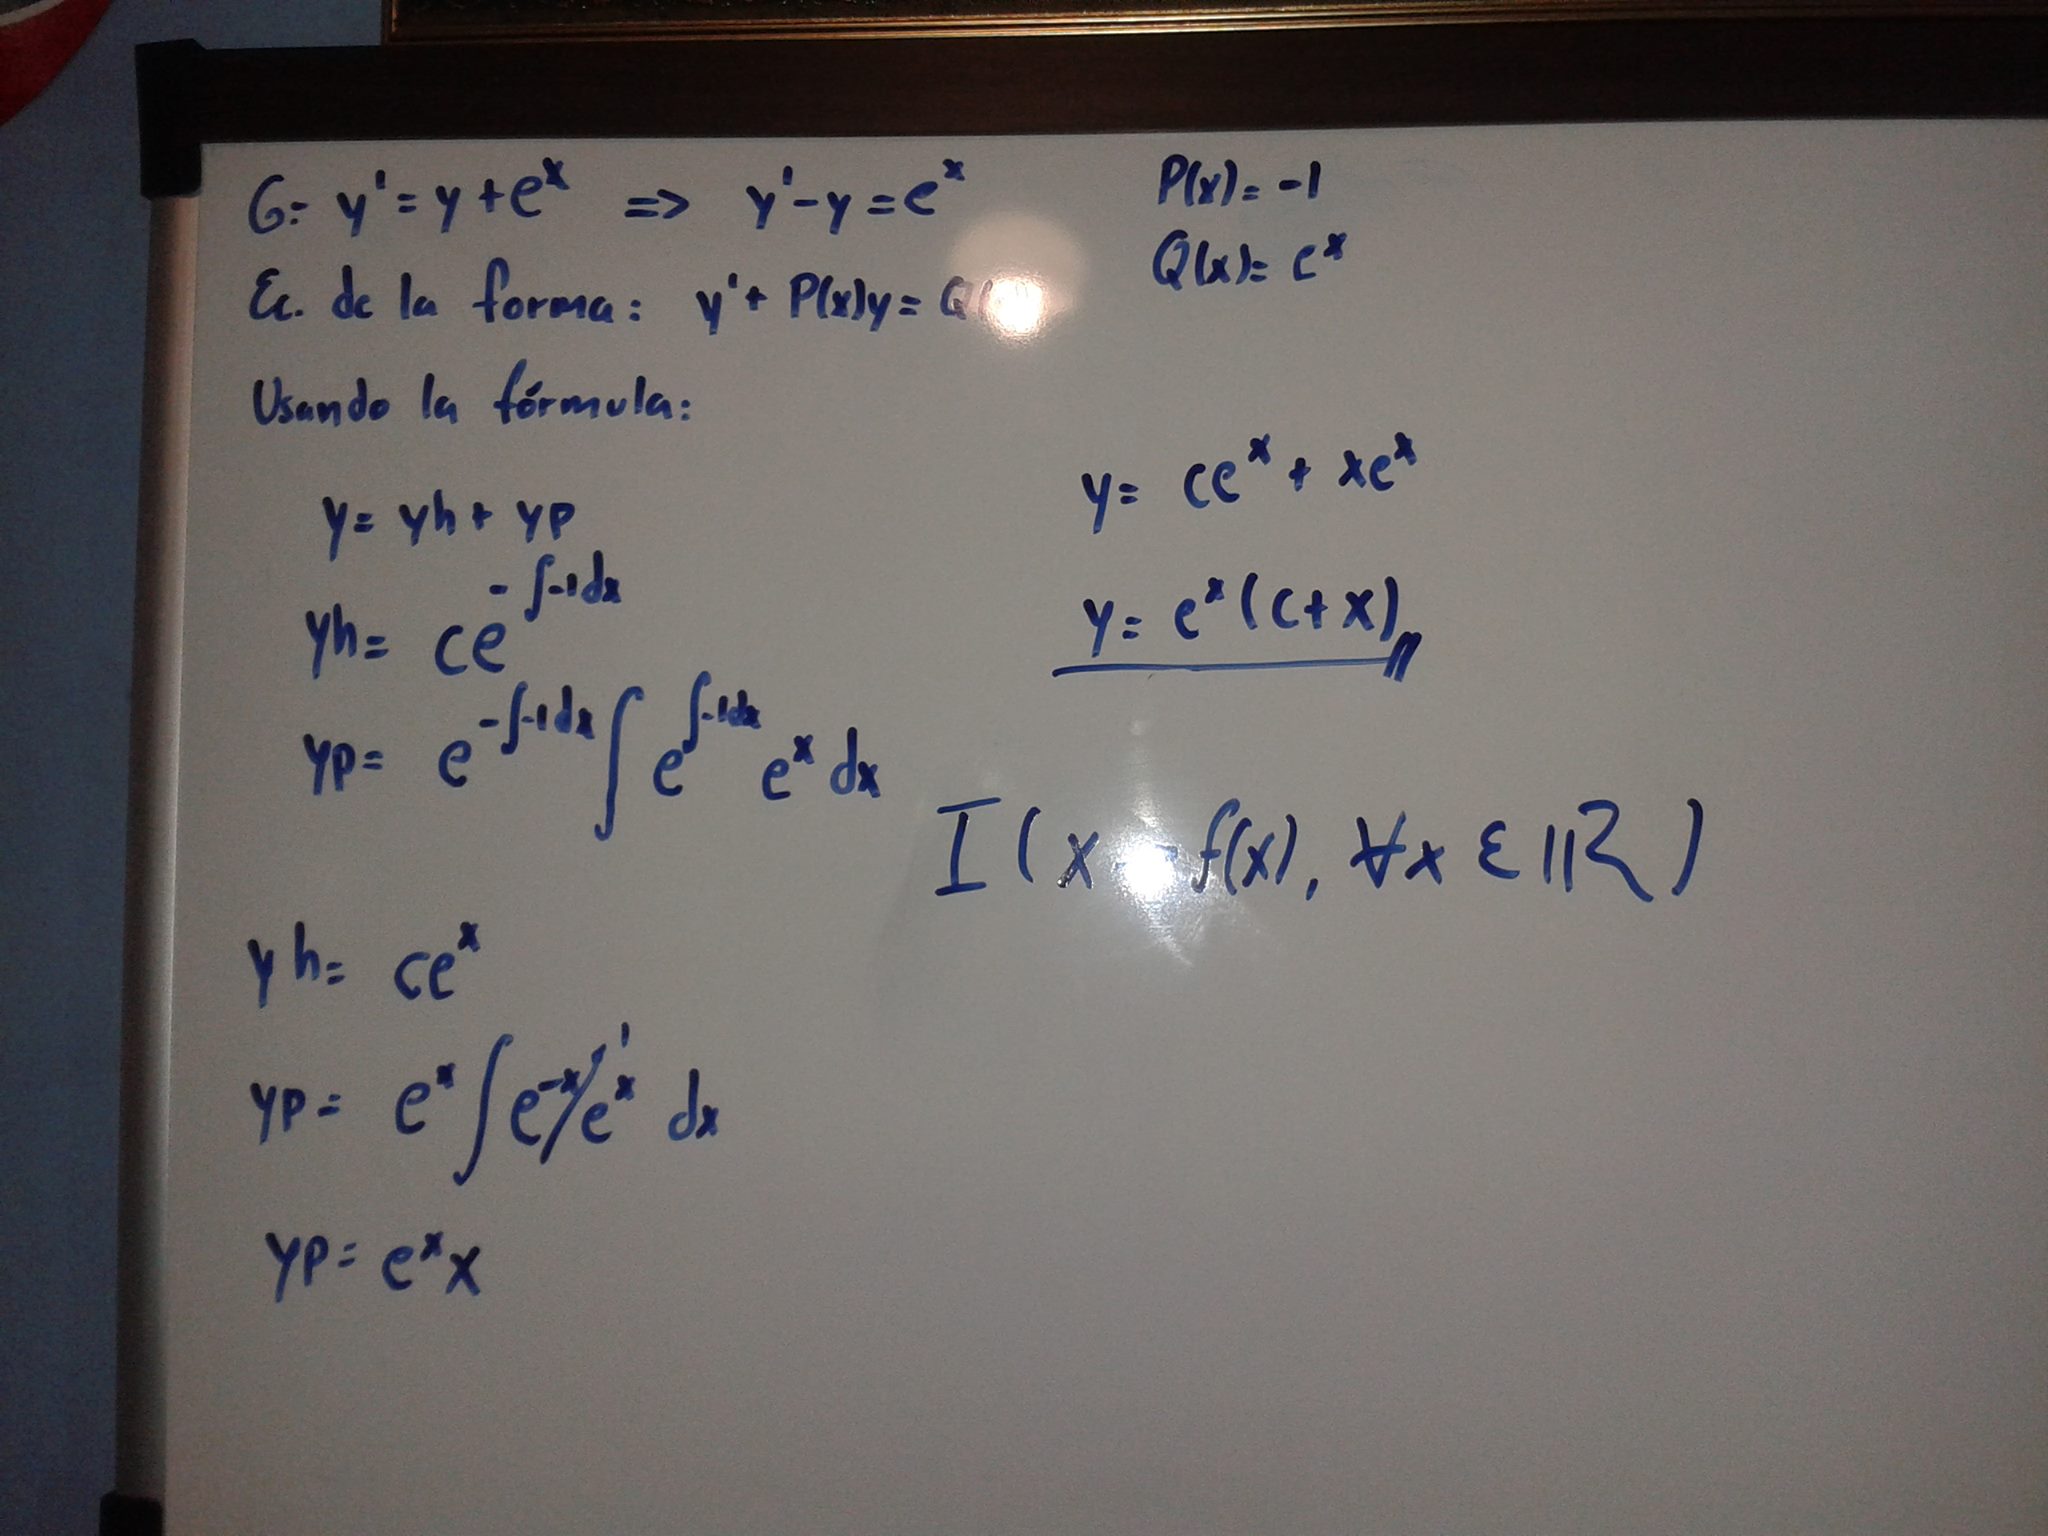 6.- y' = y + eˣ => y' - y = eˣ
P(x) = -1
Q(x) = eˣ
Ec. de la forma: y' + P(x)y = Q(
Usando la fórmula:
y = yh + yp
yh = ce^(-∫-1dx)
yp = e^(-∫-1dx) ∫ e^(∫-1dx) eˣ dx
yh = ceˣ
yp = eˣ ∫ e⁻ˣ eˣ dx
1
yp = eˣx
y = ceˣ + xeˣ
y = eˣ(c + x)
I ( x f(x), ∀x ε ℝ )